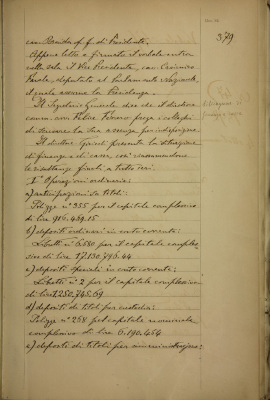 379
cav. Bonda ff. di Presidente.
Appena letto e firmato il verbale entra
nella sala il Vice Presidente, cav. Casimiro
Varla, deputato al Parlamento Nazionale
il quale assume la Presidenza.
Il Segretario Generale dice che il direttore
comm. avv. Felice prega i colleghi
di scusare la sua assenza per indisposizione.
Il direttore presenta la situazione
di finanza e di cassa, così riassumendone
le risultanze finali a tutto ieri.
1° Operazioni ordinarie:
a) anticipazioni su titoli:
Polizze n° 355 pel capitale complessivo
di lire 916.439.15
b) depositi ordinari in conto corrente:
Libretti n° 6.680 pel capitale comples-
sivo di lire 17.130.793.44
c) depositi speciali in conto corrente:
Libretti n° 2 pel capitale complessivo
di lire 1.250.745.69
d) depositi di titoli per custodia:
Polizze n° 258 pel capitale nominale
complessivo di lire 6.190.464
e) depositi di titoli per amministrazione:
Situazione di
finanza e cassa